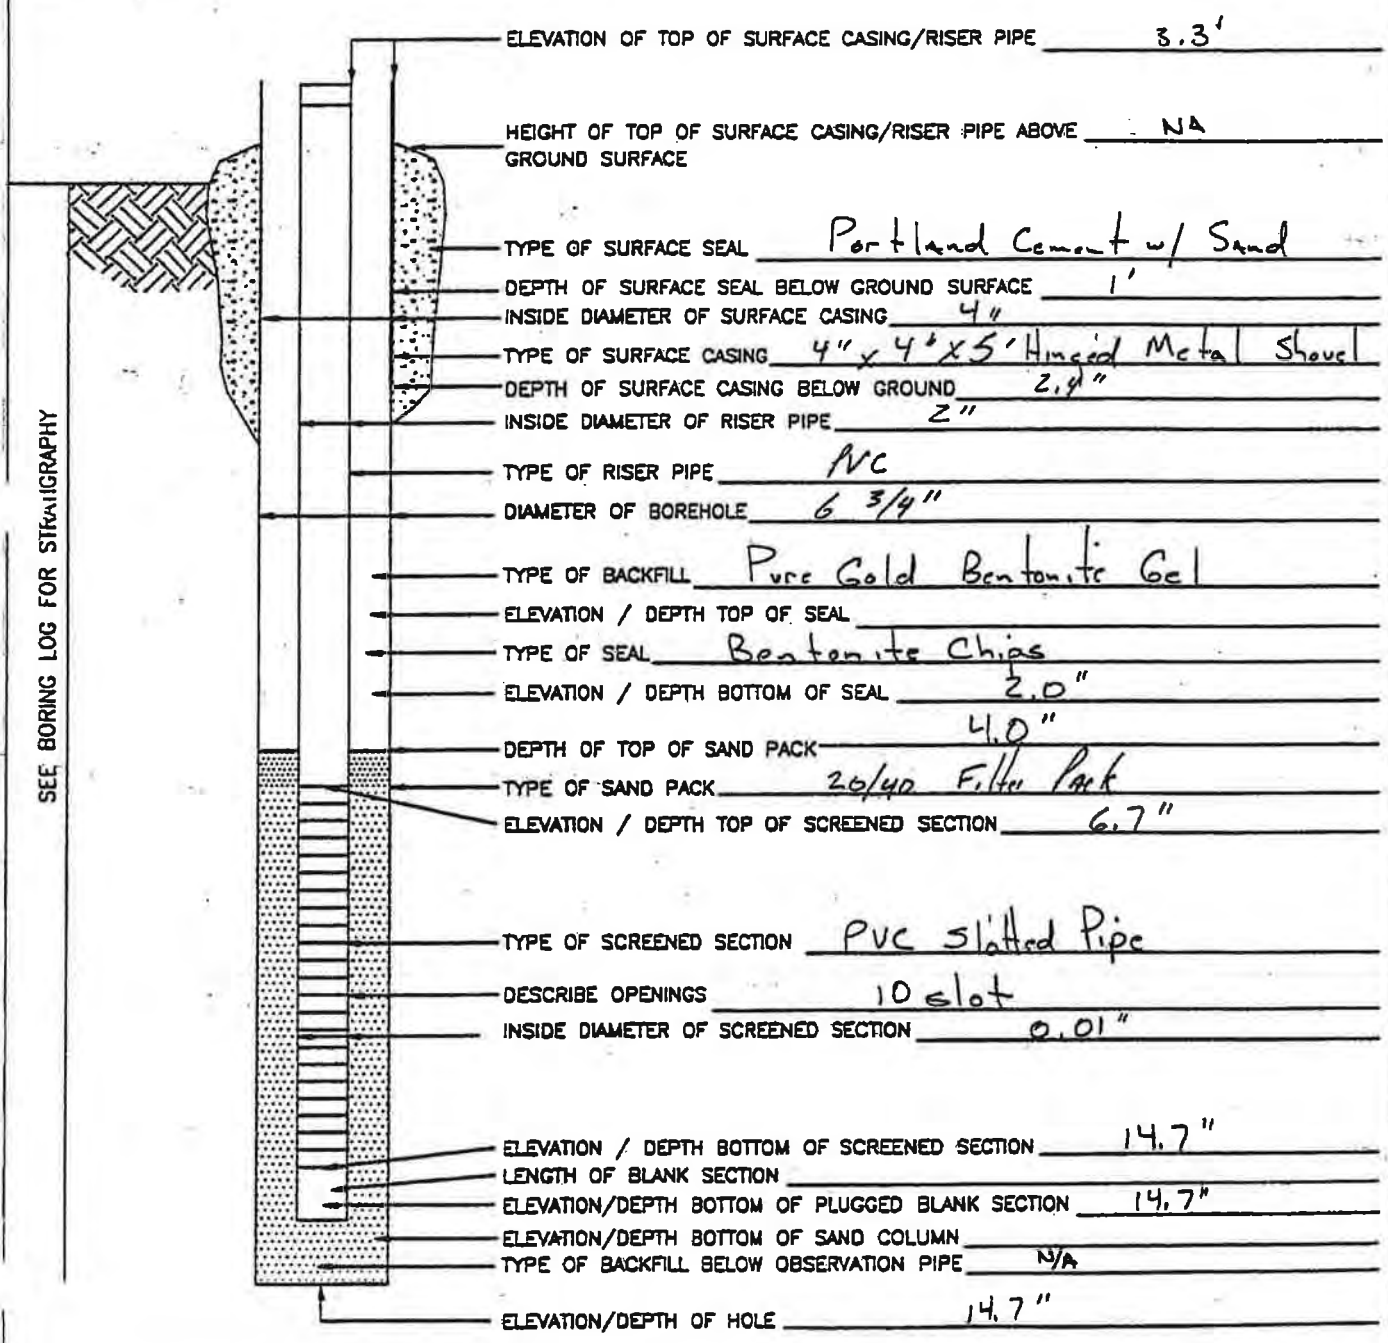 ELEVATION OF TOP OF SURFACE CASING/RISER PIPE 3.3'
HEIGHT OF TOP OF SURFACE CASING/RISER PIPE ABOVE NA
GROUND SURFACE
TYPE OF SURFACE SEAL Portland Cement w/ Sand
DEPTH OF SURFACE SEAL BELOW GROUND SURFACE 1'
INSIDE DIAMETER OF SURFACE CASING 4"
TYPE OF SURFACE CASING 4" x 4' x 5' Hinged Metal Shovel
DEPTH OF SURFACE CASING BELOW GROUND 2.4"
INSIDE DIAMETER OF RISER PIPE 2"
TYPE OF RISER PIPE PVC
DIAMETER OF BOREHOLE 6 3/4"
TYPE OF BACKFILL Pure Gold Bentonite Gel
ELEVATION / DEPTH TOP OF SEAL
TYPE OF SEAL Bentonite Chips
ELEVATION / DEPTH BOTTOM OF SEAL 2.0"
DEPTH OF TOP OF SAND PACK 4.0"
TYPE OF SAND PACK 20/40 Filter Pack
ELEVATION / DEPTH TOP OF SCREENED SECTION 6.7"
TYPE OF SCREENED SECTION PVC Slotted Pipe
DESCRIBE OPENINGS 10 slot
INSIDE DIAMETER OF SCREENED SECTION 0.01"
ELEVATION / DEPTH BOTTOM OF SCREENED SECTION 14.7"
LENGTH OF BLANK SECTION
ELEVATION/DEPTH BOTTOM OF PLUGGED BLANK SECTION 14.7"
ELEVATION/DEPTH BOTTOM OF SAND COLUMN
TYPE OF BACKFILL BELOW OBSERVATION PIPE N/A
ELEVATION/DEPTH OF HOLE 14.7"
SEE BORING LOG FOR STRATIGRAPHY